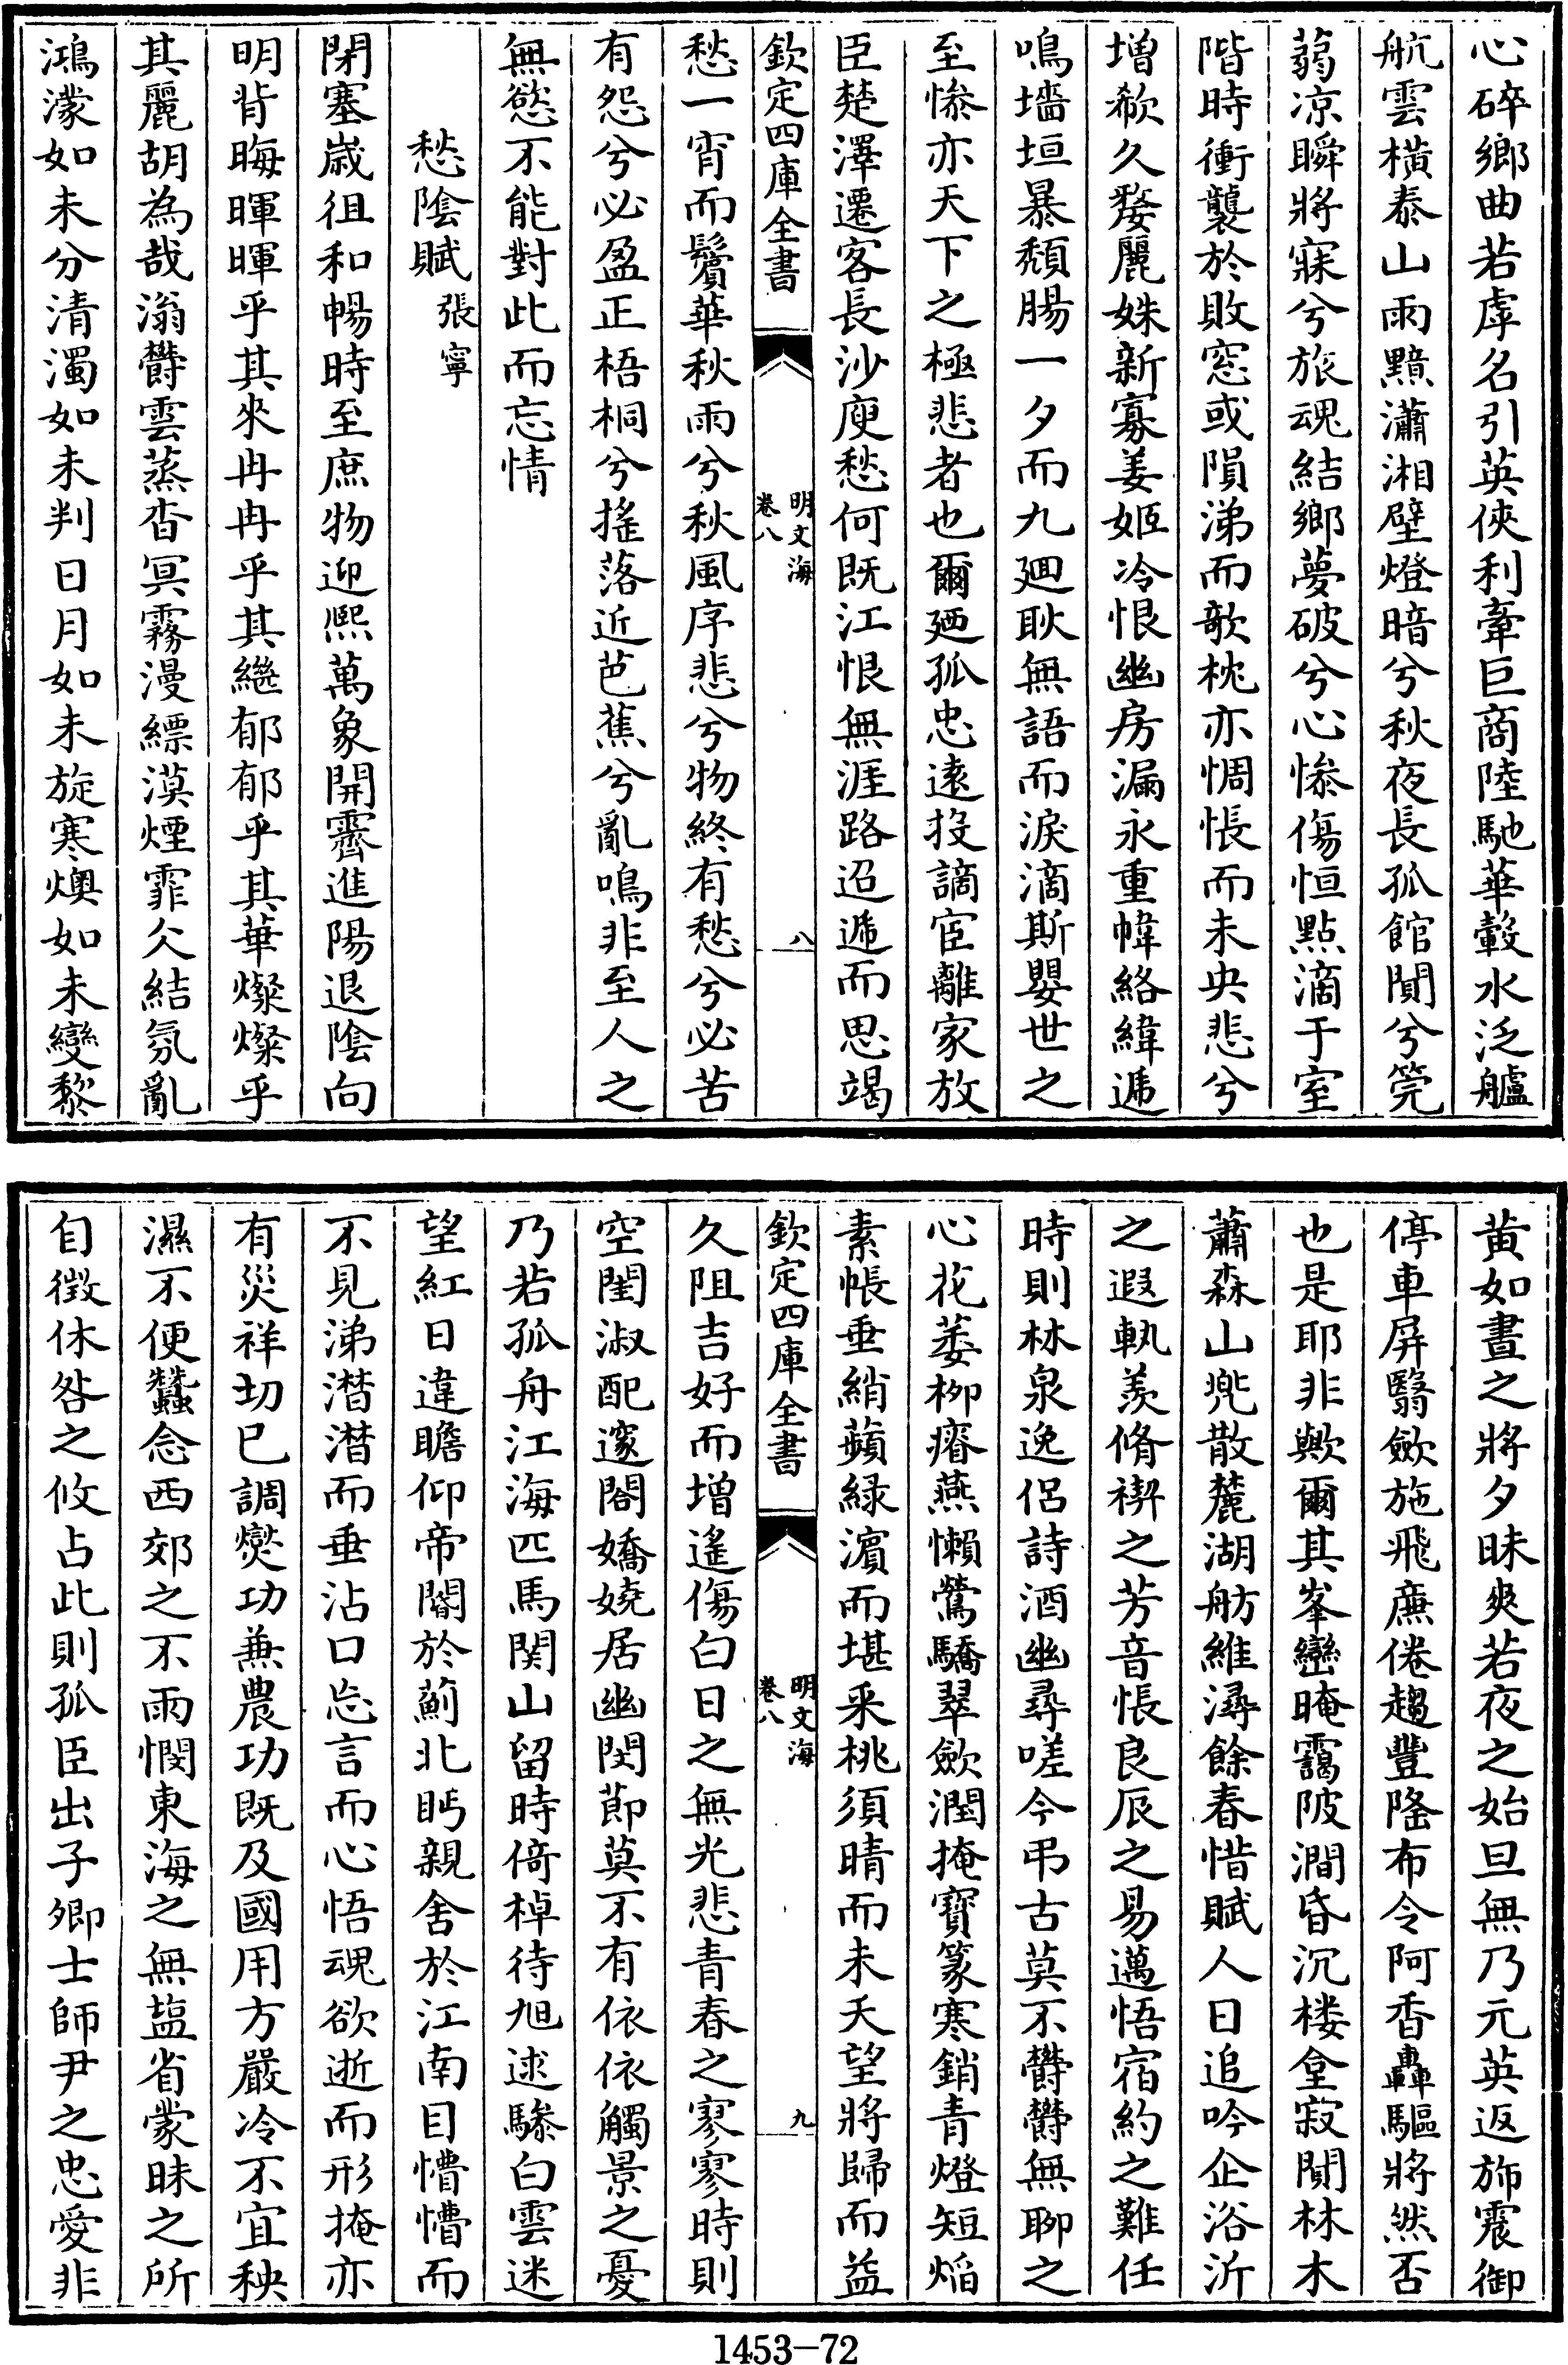 心碎鄉曲若虖名引英俠利牽巨商陸馳華轂水泛艫
航雲橫泰山雨黯瀟湘壁燈暗兮秋夜長孤館閴兮筦
蒻凉瞬將寐兮旅魂結鄉夢破兮心惨傷恒點滴于室
階時衝襲於敗窓或隕涕而欹枕亦惆悵而未央悲兮
增欷久嫠麗姝新寡姜姬冷恨幽房漏永重幃絡緯遞
鳴墻垣暴頽腸一夕而九廻耿無語而淚滴斯嬰世之
至惨亦天下之極悲者也爾廼孤忠遠投謫宦離家放
臣楚澤遷客長沙庾愁何既江恨無涯路迢遞而思竭
欽定四庫全書
明文海
卷八
八
愁一宵而鬢華秋雨兮秋風序悲兮物終有愁兮必苦
有怨兮必盈正梧桐兮搖落近芭蕉兮亂鳴非至人之
無慾不能對此而忘情
愁陰賦張寧
閉塞歲徂和暢時至庶物迎熙萬象開霽進陽退陰向
明背晦暉暉乎其來冉冉乎其繼郁郁乎其華燦燦乎
其麗胡為哉滃欝雲蒸杳冥霧漫縹漠煙霏仌結氛亂
鴻濛如未分清濁如未判日月如未旋寒燠如未變黎
黃如晝之將夕昧爽若夜之始旦無乃元英返斾震御
停車屏翳歛施飛廉倦趨豐隆布令阿香轟驅將然否
也是耶非歟爾其峯巒晻靄陂澗昏沉楼堂寂閴林木
蕭森山兠散麓湖舫維潯餘春惜賦人日追吟企浴沂
之遐軌羨脩禊之芳音悵良辰之易邁悟宿約之難任
時則林泉逸侣詩酒幽尋嗟今弔古莫不欝欝無聊之
心花萎柳瘠燕懶鶯驕翠歛潤掩寶篆寒銷青燈短焰
素帳垂綃蘋緑濵而堪采桃須晴而未夭望將歸而益
欽定四庫全書
明文海
卷八
九
久阻吉好而增遙傷白日之無光悲青春之寥寥時則
空閨淑配邃閤嬌娆居幽閔莭莫不有依依觸景之憂
乃若孤舟江海匹馬関山留時倚棹待旭逑驂白雲迷
望紅日違瞻仰帝閽於薊北眄親舍於江南目懵懵而
不見涕潸潸而垂沾口忘言而心悟魂欲逝而形掩亦
有災祥切巳調爕功兼農功既及國用方嚴冷不宜秧
濕不便蠶念西郊之不雨憫東海之無塩省蒙昧之所
自徴休咎之攸占此則孤臣出子卿士師尹之忠愛非
1453-72